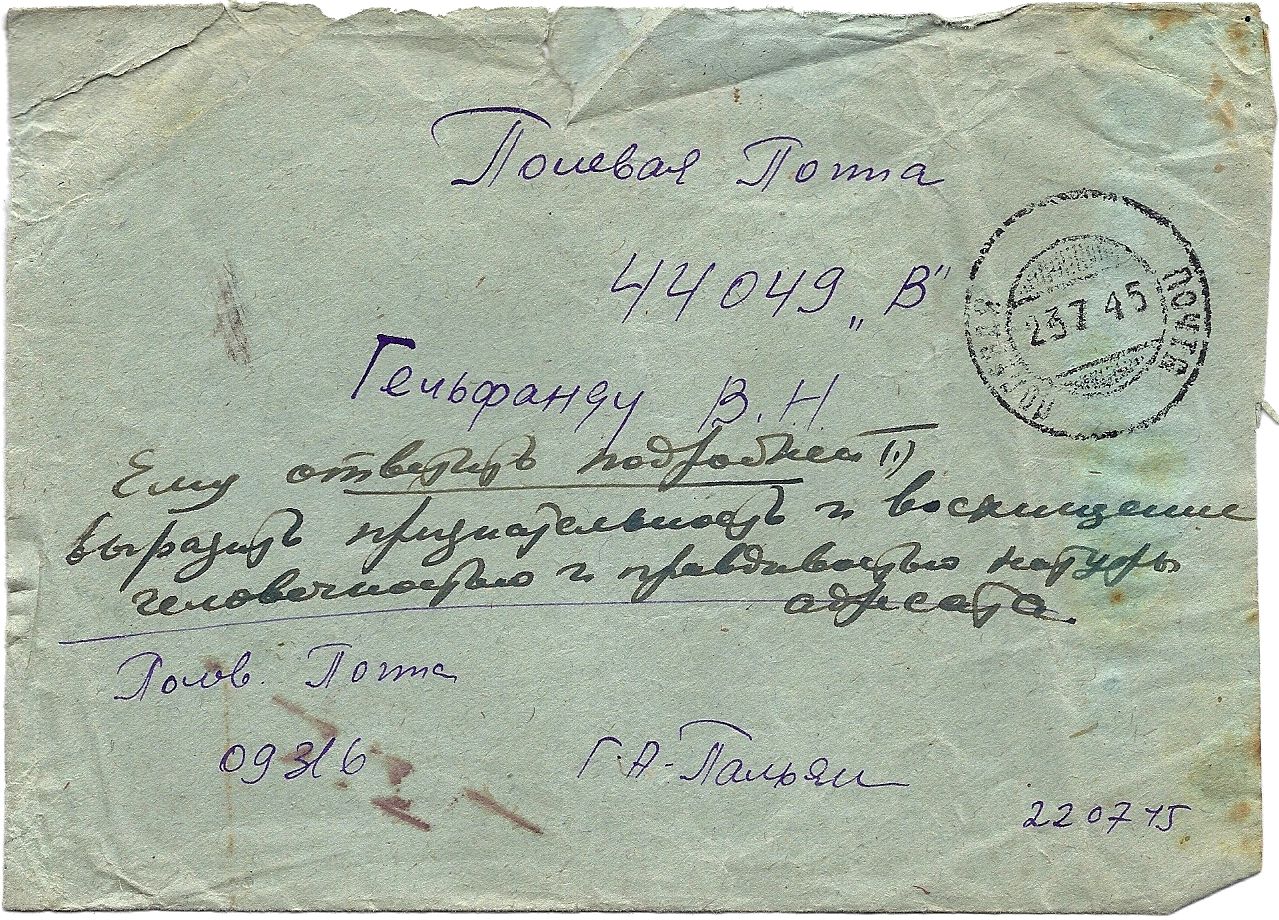 Полевая Почта
44049 „В"
ПОЛЕВАЯ ПОЧТА
23 7 45
Гельфанду В. Н.
Ему ответить подробнее (!)
Выразить признательность и восхищение
человечностью и правдивостью натуры
адресата.
Полев. Почта
09316
Г. А. Пальян
22 07 45